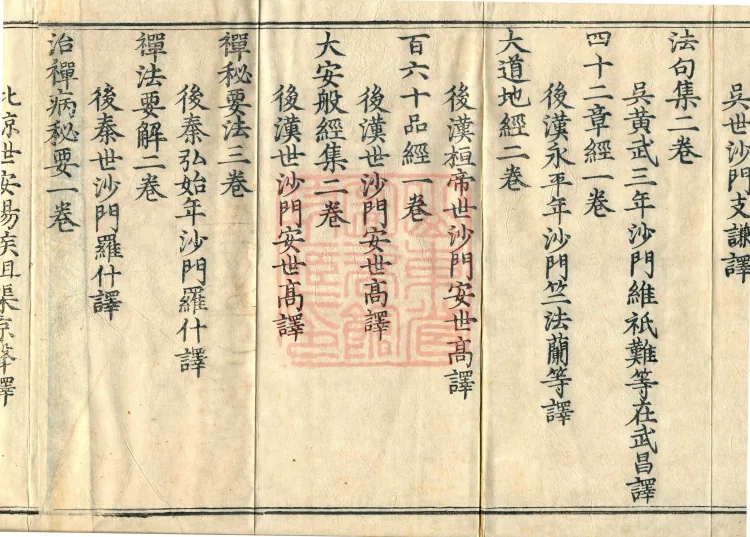 吳世沙門支謙譯
法句集二卷
吳黃武三年沙門維祇難等在武昌譯
四十二章經一卷
後漢永平年沙門竺法蘭等譯
大道地經二卷
後漢桓帝世沙門安世髙譯
百六十品經一卷
後漢世沙門安世髙譯
大安般經集二卷
後漢世沙門安世髙譯
禪秘要法三卷
後秦弘始年沙門羅什譯
禪法要解二卷
後秦世沙門羅什譯
治禪病秘要一卷
北京世安陽侯沮渠京聲譯